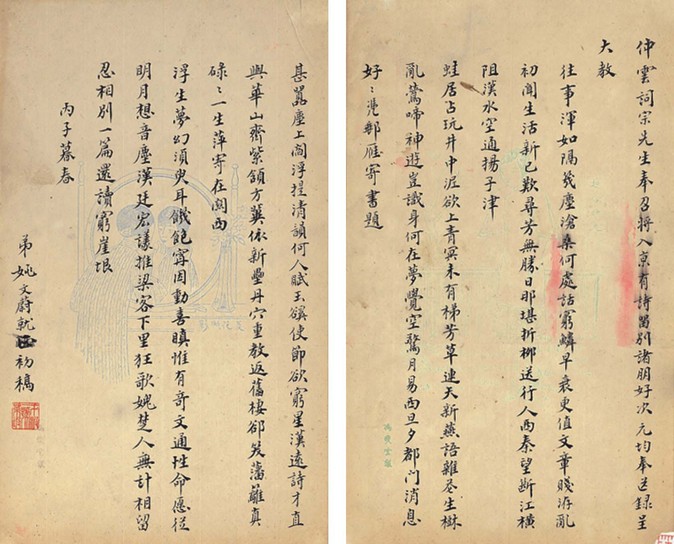 仲雲詞宗先生奉召將入京有詩留別諸朋好次元均奉送錄呈
大教
往事渾如隔幾塵滄桑何處話窮鱗早衰更值文章賤游亂
初聞生活新已歎尋芳無勝日那堪折柳送行人西秦望斷江橫
阻漢水空通揚子津
蛙居占玩井中涯欲上青冥未有梯芳草連天新燕語雜花生樹
亂鶯啼神遊豈識身何在夢覺空驚月易西旦夕都門消息
好〻憑郵雁寄書題
甚囂塵上閻浮提清韻何人賦玉谿使節欲窮星漢遠詩才直
與華山齊紫頷方冀依新壘丹穴重教返舊棲卻笑藩籬真
碌〻一生萍寄在關西
浮生夢幻須臾耳饑飽寧因動喜嗔惟有奇文通性命愿從
明月想音塵漢廷宏議推梁客下里狂歌媿楚人無計相留
忍相別一篇還讀窮崖垠
丙子暮春
弟姚文蔚軌初稿